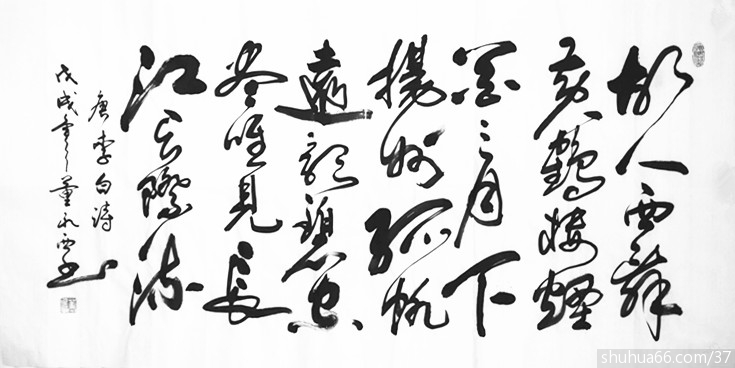 故人西辞
黄鶴楼煙
花三月下
揚州孤帆
遠影碧空
尽唯見長
江天際流
唐李白詩
戊戌年董永西书
shuhua66.com/37